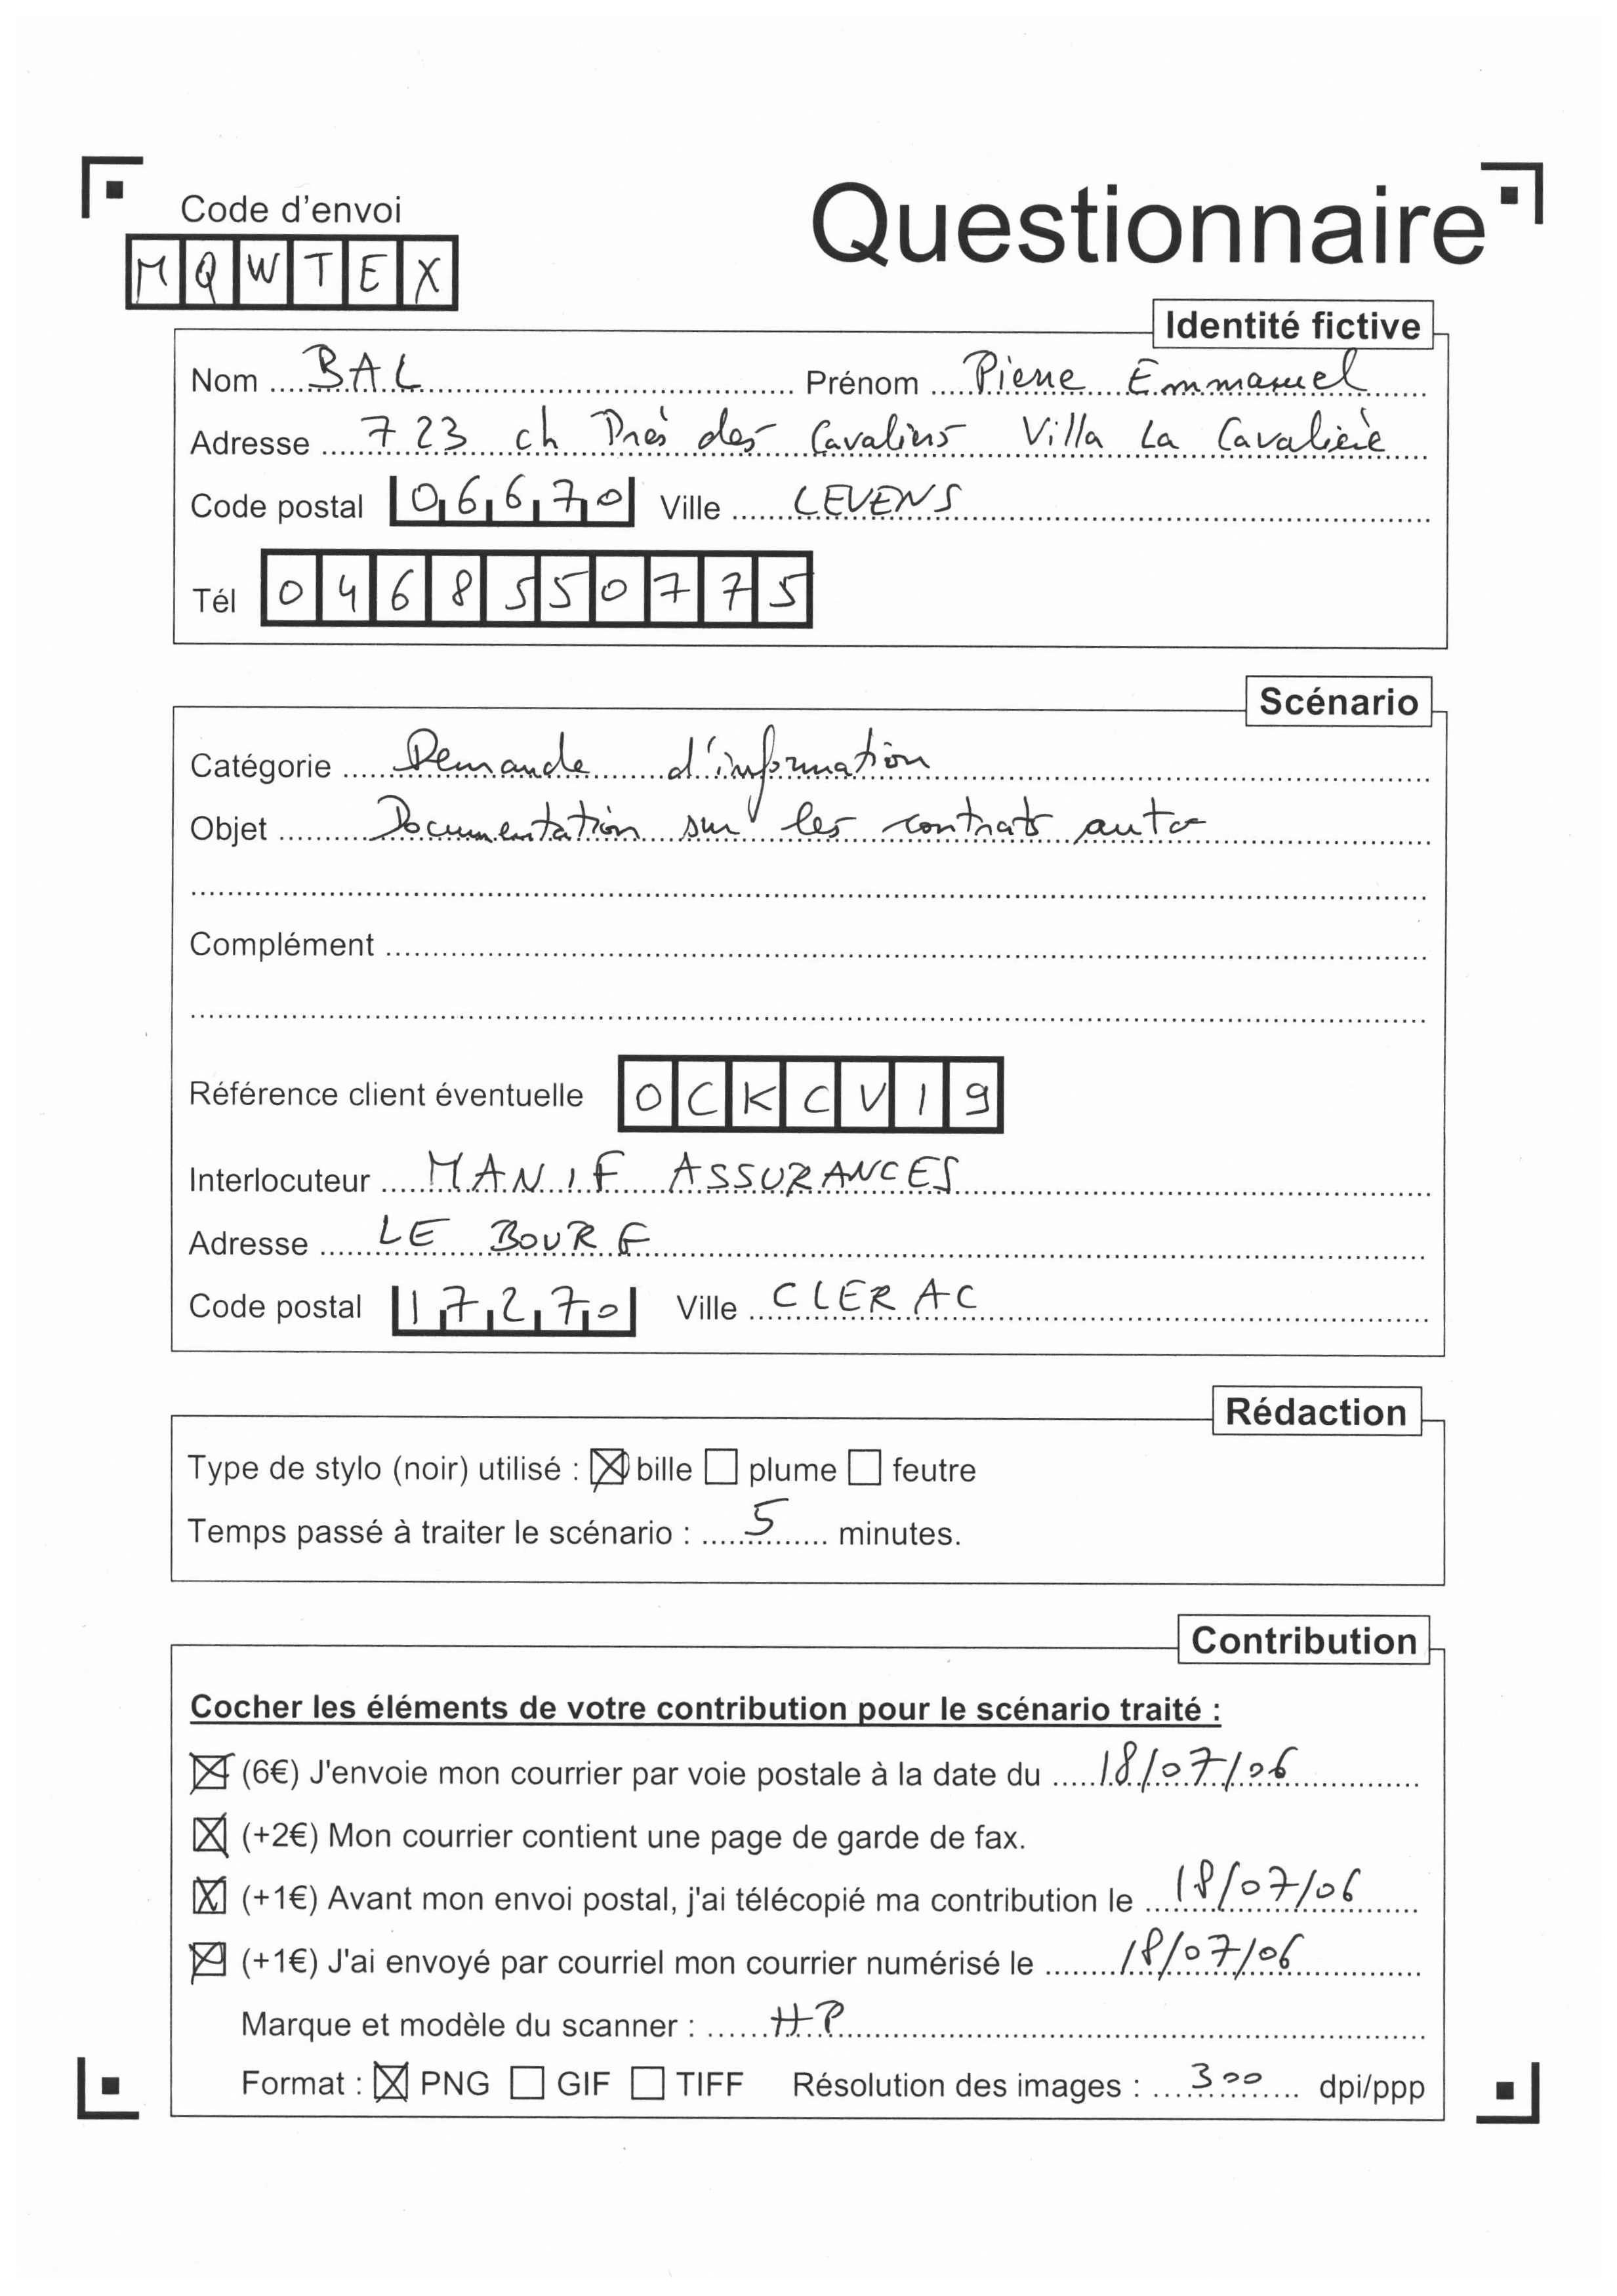 Code d'envoi
Questionnaire
MQWTEX
Identité fictive
Nom BAL Prénom Pierre Emmanuel
Adresse 723 ch Prés des Cavaliers Villa La Cavalière
Code postal 06670 Ville LEVENS
Tél 0468550775
Scénario
Catégorie Demande d'information
Objet Documentation sur les contrats auto
Complément
Référence client éventuelle OCKCV19
Interlocuteur MANIF ASSURANCES
Adresse LE BOURG
Code postal 17270 Ville CLERAC
Rédaction
Type de stylo (noir) utilisé : ☒ bille ☐ plume ☐ feutre
Temps passé à traiter le scénario : 5 minutes.
Contribution
Cocher les éléments de votre contribution pour le scénario traité :
☒ (6€) J'envoie mon courrier par voie postale à la date du 18/07/06
☒ (+2€) Mon courrier contient une page de garde de fax.
☒ (+1€) Avant mon envoi postal, j'ai télécopié ma contribution le 18/07/06
☒ (+1€) J'ai envoyé par courriel mon courrier numérisé le 18/07/06
Marque et modèle du scanner : HP
Format : ☒ PNG ☐ GIF ☐ TIFF Résolution des images : 300 dpi/ppp